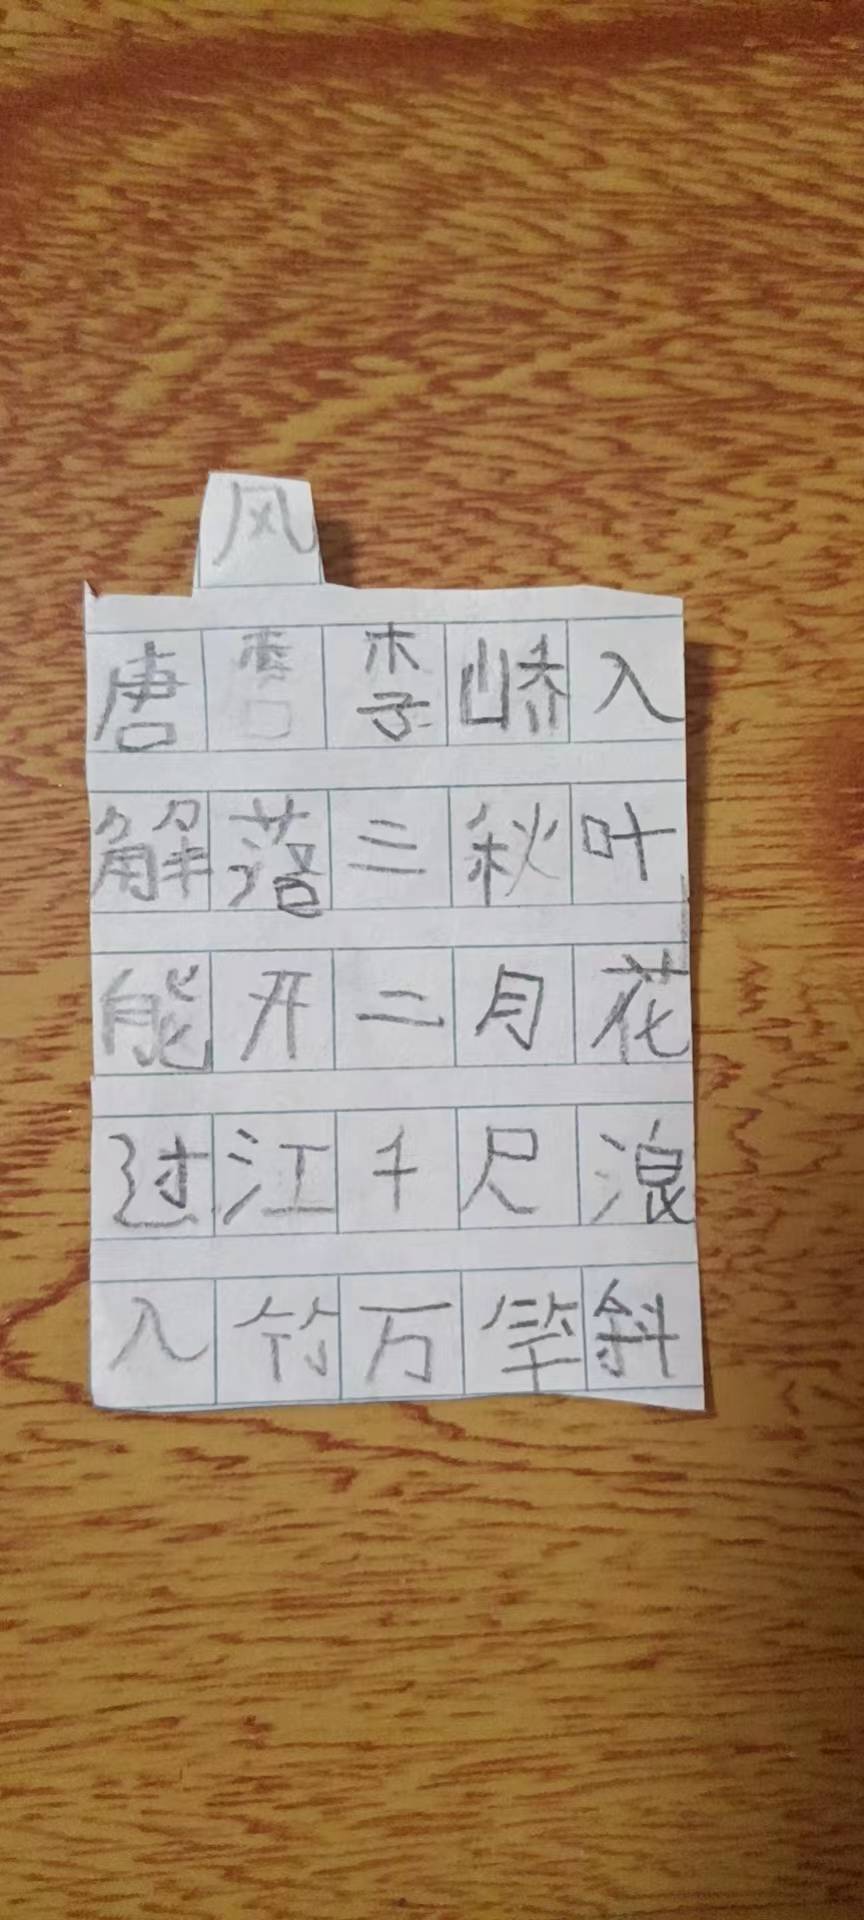 风
唐李峤入
解落三秋叶
能开二月花
过江千尺浪
入竹万竿斜